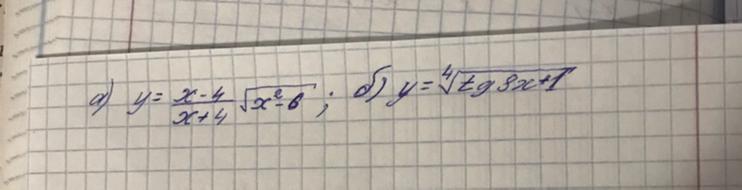 а) y = \frac{x-4}{x+4} \sqrt{x^2-6} ; б) y = \sqrt[4]{tg 3x+1}